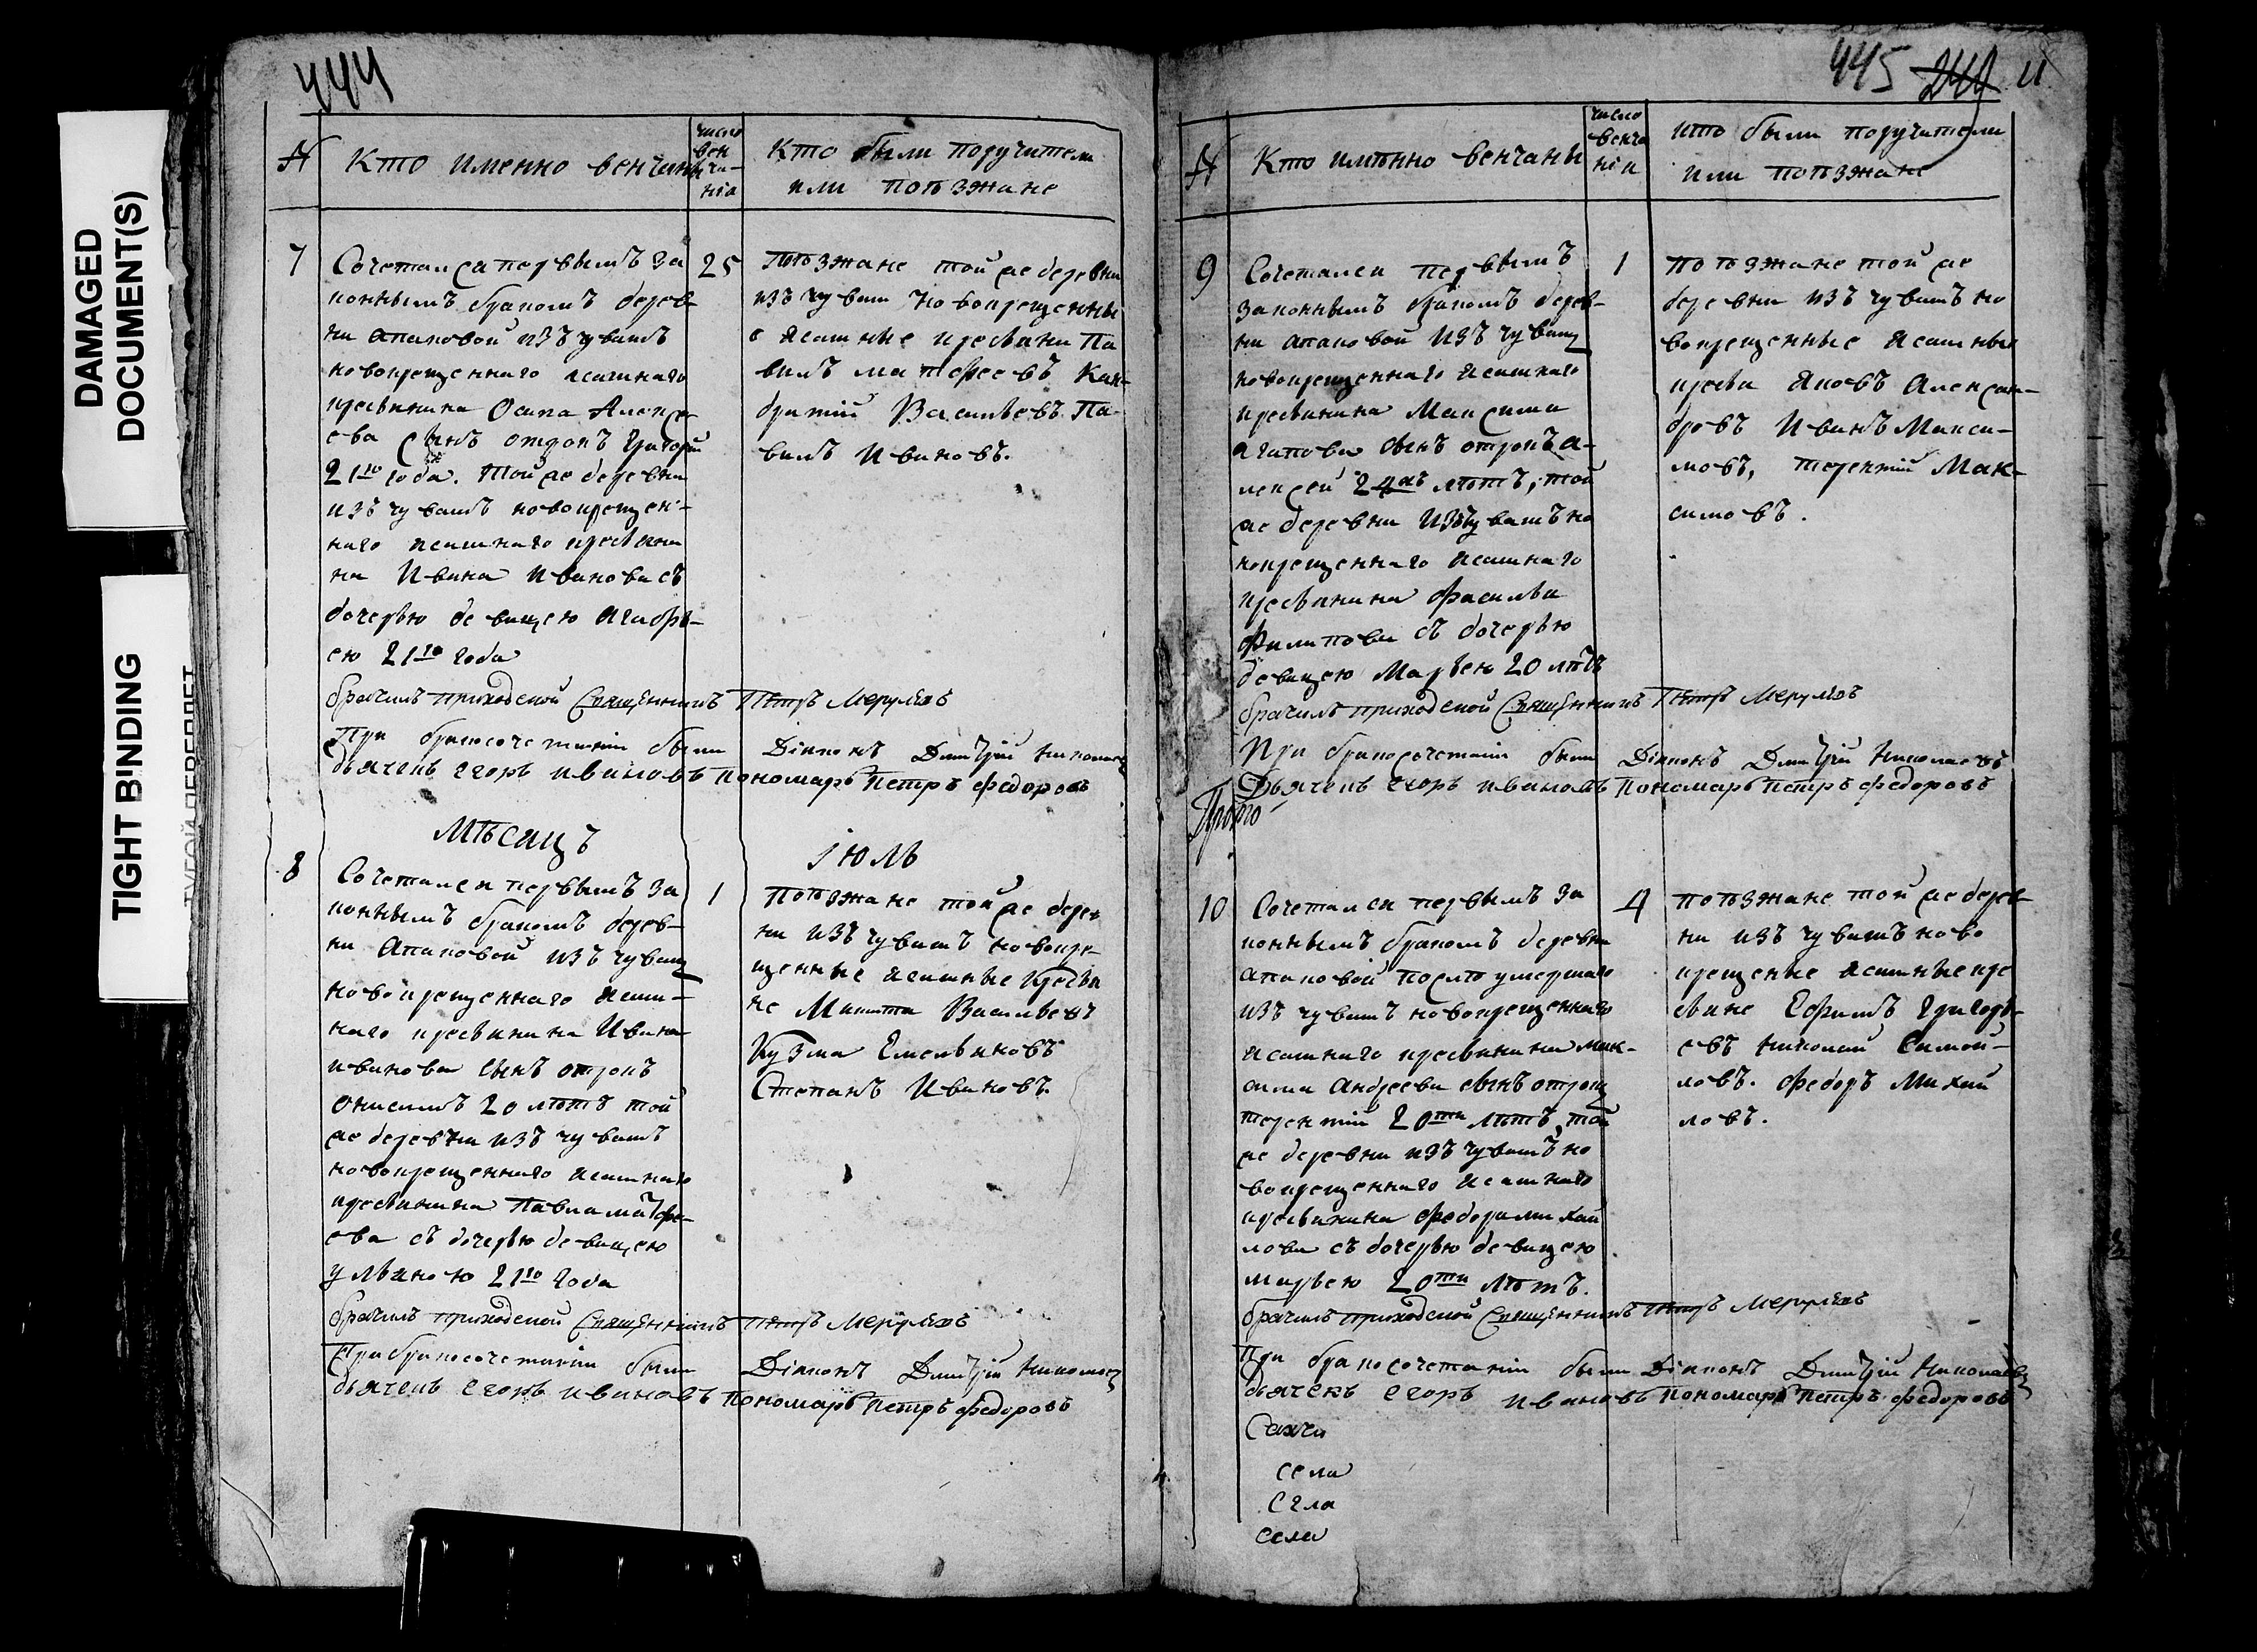 DAMAGED
DOCUMENT(S)
TIGHT BINDING
444
№
Кто именно венчаны
число
вен
ча-
ніа
Кто были поручители
или поѣзжане
7
Сочетался первымъ за
коннымъ бракомъ дерев
ни апаковой изъ чувашъ
новокрещеннаго ясашнаго
кресьянина Осипа Алексе
ева сынъ отрокъ Григорій
21го года. той же деревни
изъ чувашъ новокрещен-
наго ясашнаго кресьяни
на Ивана Иванова съ
дочерью девицею Агафь-
ею 21го года
25
Поѣзжане той же деревни
изъ чуваш новокрещенны
е ясашные кресьяни Па
вилъ матфеевъ Кан-
дратій Васильевъ Па-
вилъ Ивановъ.
брачилъ приходской Священникъ Петръ Мерумовъ
При бракосочетании были Діаконъ Димитрій Николаевъ
дьячекъ егоръ ивановъ пономарь петръ федоровъ
мѣсицъ іюль
8
Сочетался первымъ за
коннымъ бракомъ дерев-
ни Апаковой изъ чуваш
новокрещеннаго ясаш-
наго кресьянина Ивана
иванова сынъ отрокъ
Онисимъ 20 лѣтъ той
же деревни изъ чувашъ
новокрещеннаго ясашнаго
кресьянина Павла матфе-
ева съ дочерью девицею
ульяною 21го года
1
поѣзжане той же дерев
ни изъ чувашъ новокре
щенные ясашные кресья
не Микита Васильевъ
Кузма Емельяновъ
Степанъ Ивановъ.
брачилъ приходской Священникъ Петръ Мерумовъ
При бракосочетании были Діаконъ Димитрій Николаевъ
дьячекъ егоръ ивановъ пономарь петръ федоровъ
445 11
№
Кто имѣнно венчаны
число
венча
ніи
кто были поручители
или поѣзжане
9
Сочетался первымъ
законнымъ бракомъ дерев-
ни апаковой изъ чуваш
новокрещеннаго ясашнаго
кресьянина Максима
агапова сынъ отрокъ а-
лексей 24хъ лѣтъ, той
же деревни изъ чувашъ но
кокрещеннаго ясашнаго
кресьянина Фасилья
Филипова съ дочерью
девицею Марьею 20 лѣтъ
1
поѣзжане той же
деревни изъ чувашъ но
вокрещенные ясашные
кресья Яковъ Алексан-
дровъ Иванъ Макси-
мовъ, терентій Мак-
симовъ.
брачилъ приходской Священникъ Петръ Мерумовъ
При бракосочетаніи были Діаконъ Димитрій Николаевъ
Дьячекъ егоръ ивановъ пономарь петръ федоровъ
10
Сочетался первымъ за
коннымъ бракомъ деревни
апаковой послѣ умершаго
изъ чувашъ новокрещеннаго
ясашнаго кресьянина мак-
сима андреева сынъ отрок
терентій 20ти лѣтъ, той
же деревни изъ чувашъ но
вокрещеннаго ясашнаго
кресьянина федора михай
лова съ дочерью девицею
марьею 20ти лѣтъ.
4
поѣзжане той же дерев
ни изъ чувашъ ново
крещеные ясашные кре
сьяне Ефимъ Григорь
евъ Николай Самой-
ловъ. федоръ Михай
ловъ.
брачилъ приходской Священникъ Петръ Мерумовъ
При бракосочетаніи были Діаконъ Димитрій Николаевъ
дьячекъ егоръ ивановъ пономарь петръ федоровъ
села
села
села